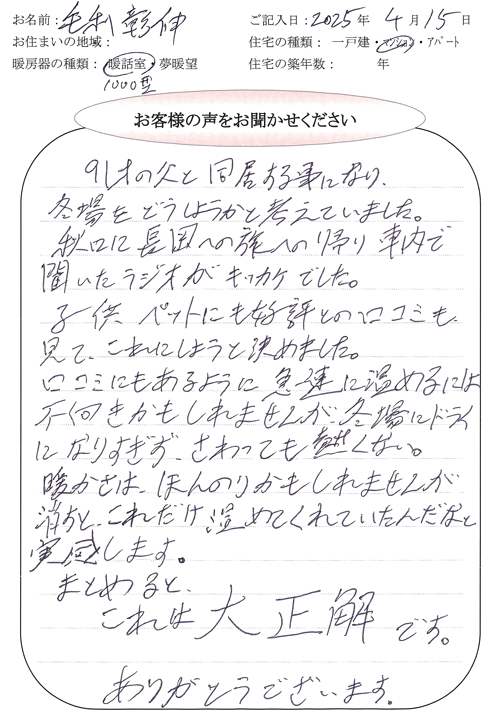 お名前： 毛利彰伸 ご記入日：2025年 4月15日
お住まいの地域： 住宅の種類： 一戸建・マンション・アパート
暖房器の種類：暖話室・夢暖望 住宅の築年数： 年
1000型
お客様の声をお聞かせください
91才の父と同居する事になり、
冬場をどうしようかと考えていました。
秋口に長岡への旅への帰り車内で
聞いたラジオがキッカケでした。
子供 ペットにも好評との口コミも、
見て、これにしようと決めました。
口コミにもあるように急速に温めるには
不向きかもしれませんが、冬場にドライ
になりすぎず、さわっても熱くない。
暖かさは、ほんのりかもしれませんが
消すと、これだけ温めてくれていたんだなと
実感します。
まとめると、
これは大正解です。
ありがとうございます。